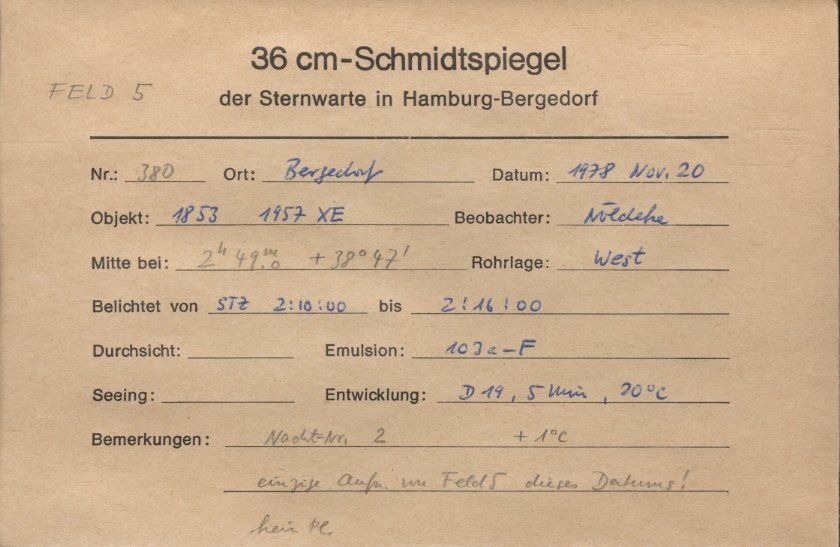 36 cm-Schmidtspiegel
FELD 5
der Sternwarte in Hamburg-Bergedorf
Nr.: 380 Ort: Bergedorf Datum: 1978 Nov. 20
Objekt: 1853 1957 XE Beobachter: Nöldeke
Mitte bei: 2h 49m.0 +38°47'
Rohrlage: West
Belichtet von STZ 2:10:00 bis 2:16:00
Durchsicht: Emulsion: 103a-F
Seeing: Entwicklung: D19, 5 Min, 20°C
Bemerkungen: Nacht-Nr. 2 +1°C
einzige Aufn. von Feld 5 dieses Datums!
kein Pl.